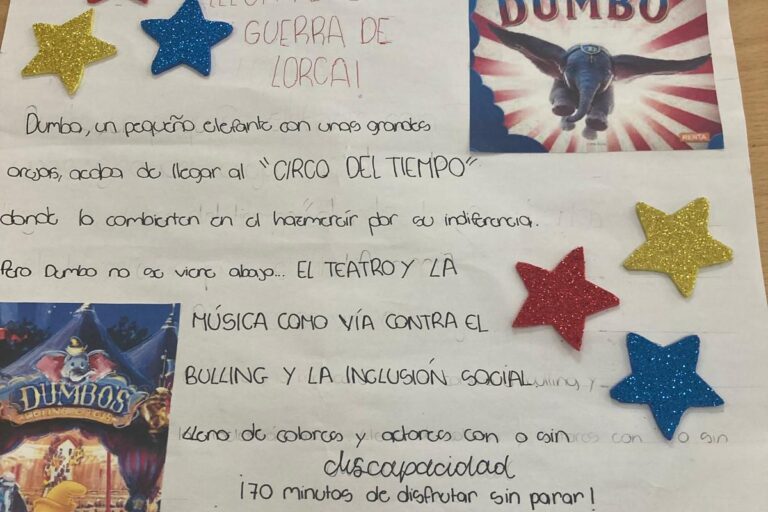 GUERRA DE
LORCA!
DUMBO
Dumbo, un pequeño elefante con unas grandes
orejas, acaba de llegar al "CIRCO DEL TIEMPO"
donde lo combierten en el hazmerreir por su indiferencia.
RENTA
Pero Dumbo no se viene abajo... EL TEATRO Y LA
MÚSICA COMO VÍA CONTRA EL
BULLING Y LA INCLUSIÓN SOCIAL
DUMBOS
lleno de colores y actores con o sin
discapacidad
¡70 minutos de disfrutar sin parar!